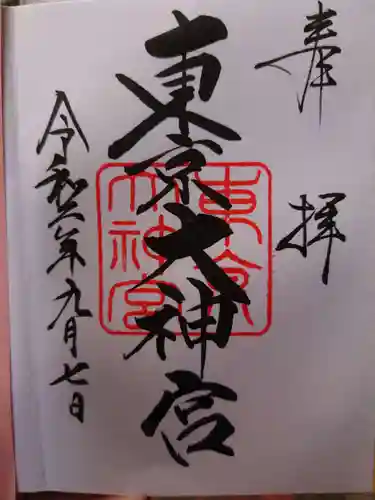 奉拝
東京大神宮
東京大神宮
令和六年九月七日